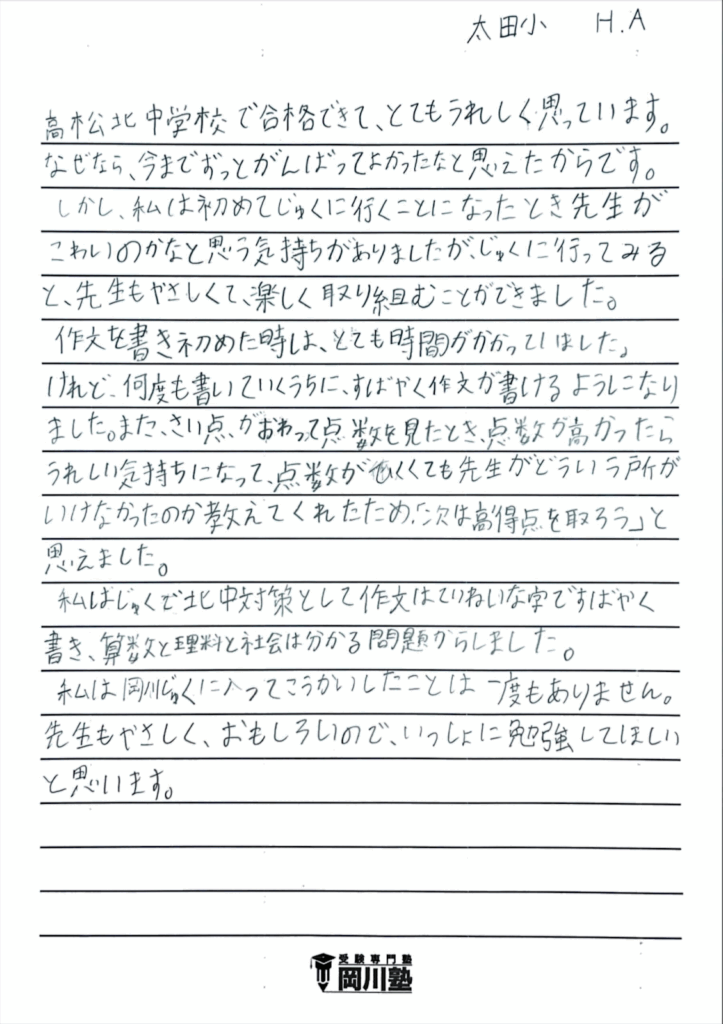 太田小 H.A
高松北中学校で合格できて、とてもうれしく思っています。
なぜなら、今までずっとがんばってよかったなと思えたからです。
しかし、私は初めてじゅくに行くことになったとき先生が
こわいのかなと思う気持ちがありましたが、じゅくに行ってみる
と、先生もやさしくて、楽しく取り組むことができました。
作文を書き初めた時は、とても時間がかかっていました。
けれど、何度も書いていくうちに、すばやく作文が書けるようになり
ました。また、さい点がおわって点数を見たとき、点数が高かったら
うれしい気持ちになって、点数が低くても先生がどういう所が
いけなかったのか教えてくれたため、「次は高得点を取ろう」と
思えました。
私はじゅくで北中対策として作文はていねいな字ですばやく
書き、算数と理科と社会は分かる問題からしました。
私は岡川じゅくに入ってこうかいしたことは一度もありません。
先生もやさしく、おもしろいので、いっしょに勉強してほしい
と思います。
受験専門塾
岡川塾